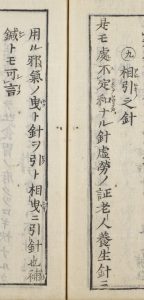 九 相引之針
是モ處不定和ナル針虚勞ノ証老人養生針ニ
用ル邪氣ノ曳ト針ヲ引ト相曳ニ引針也補
鍼トモ可言